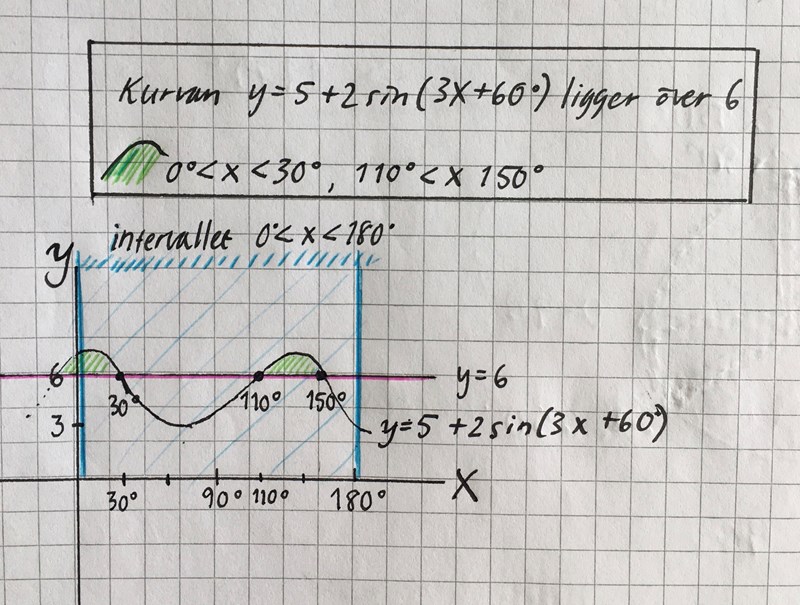 Kurvan y=5+2sin(3x+60°) ligger över 6
0°<x<30°, 110°<x 150°
intervallet 0°<x<180°
y
6
y=6
30°
110°
150°
3
y=5+2sin(3x+60°)
30°
90°
110°
180°
X